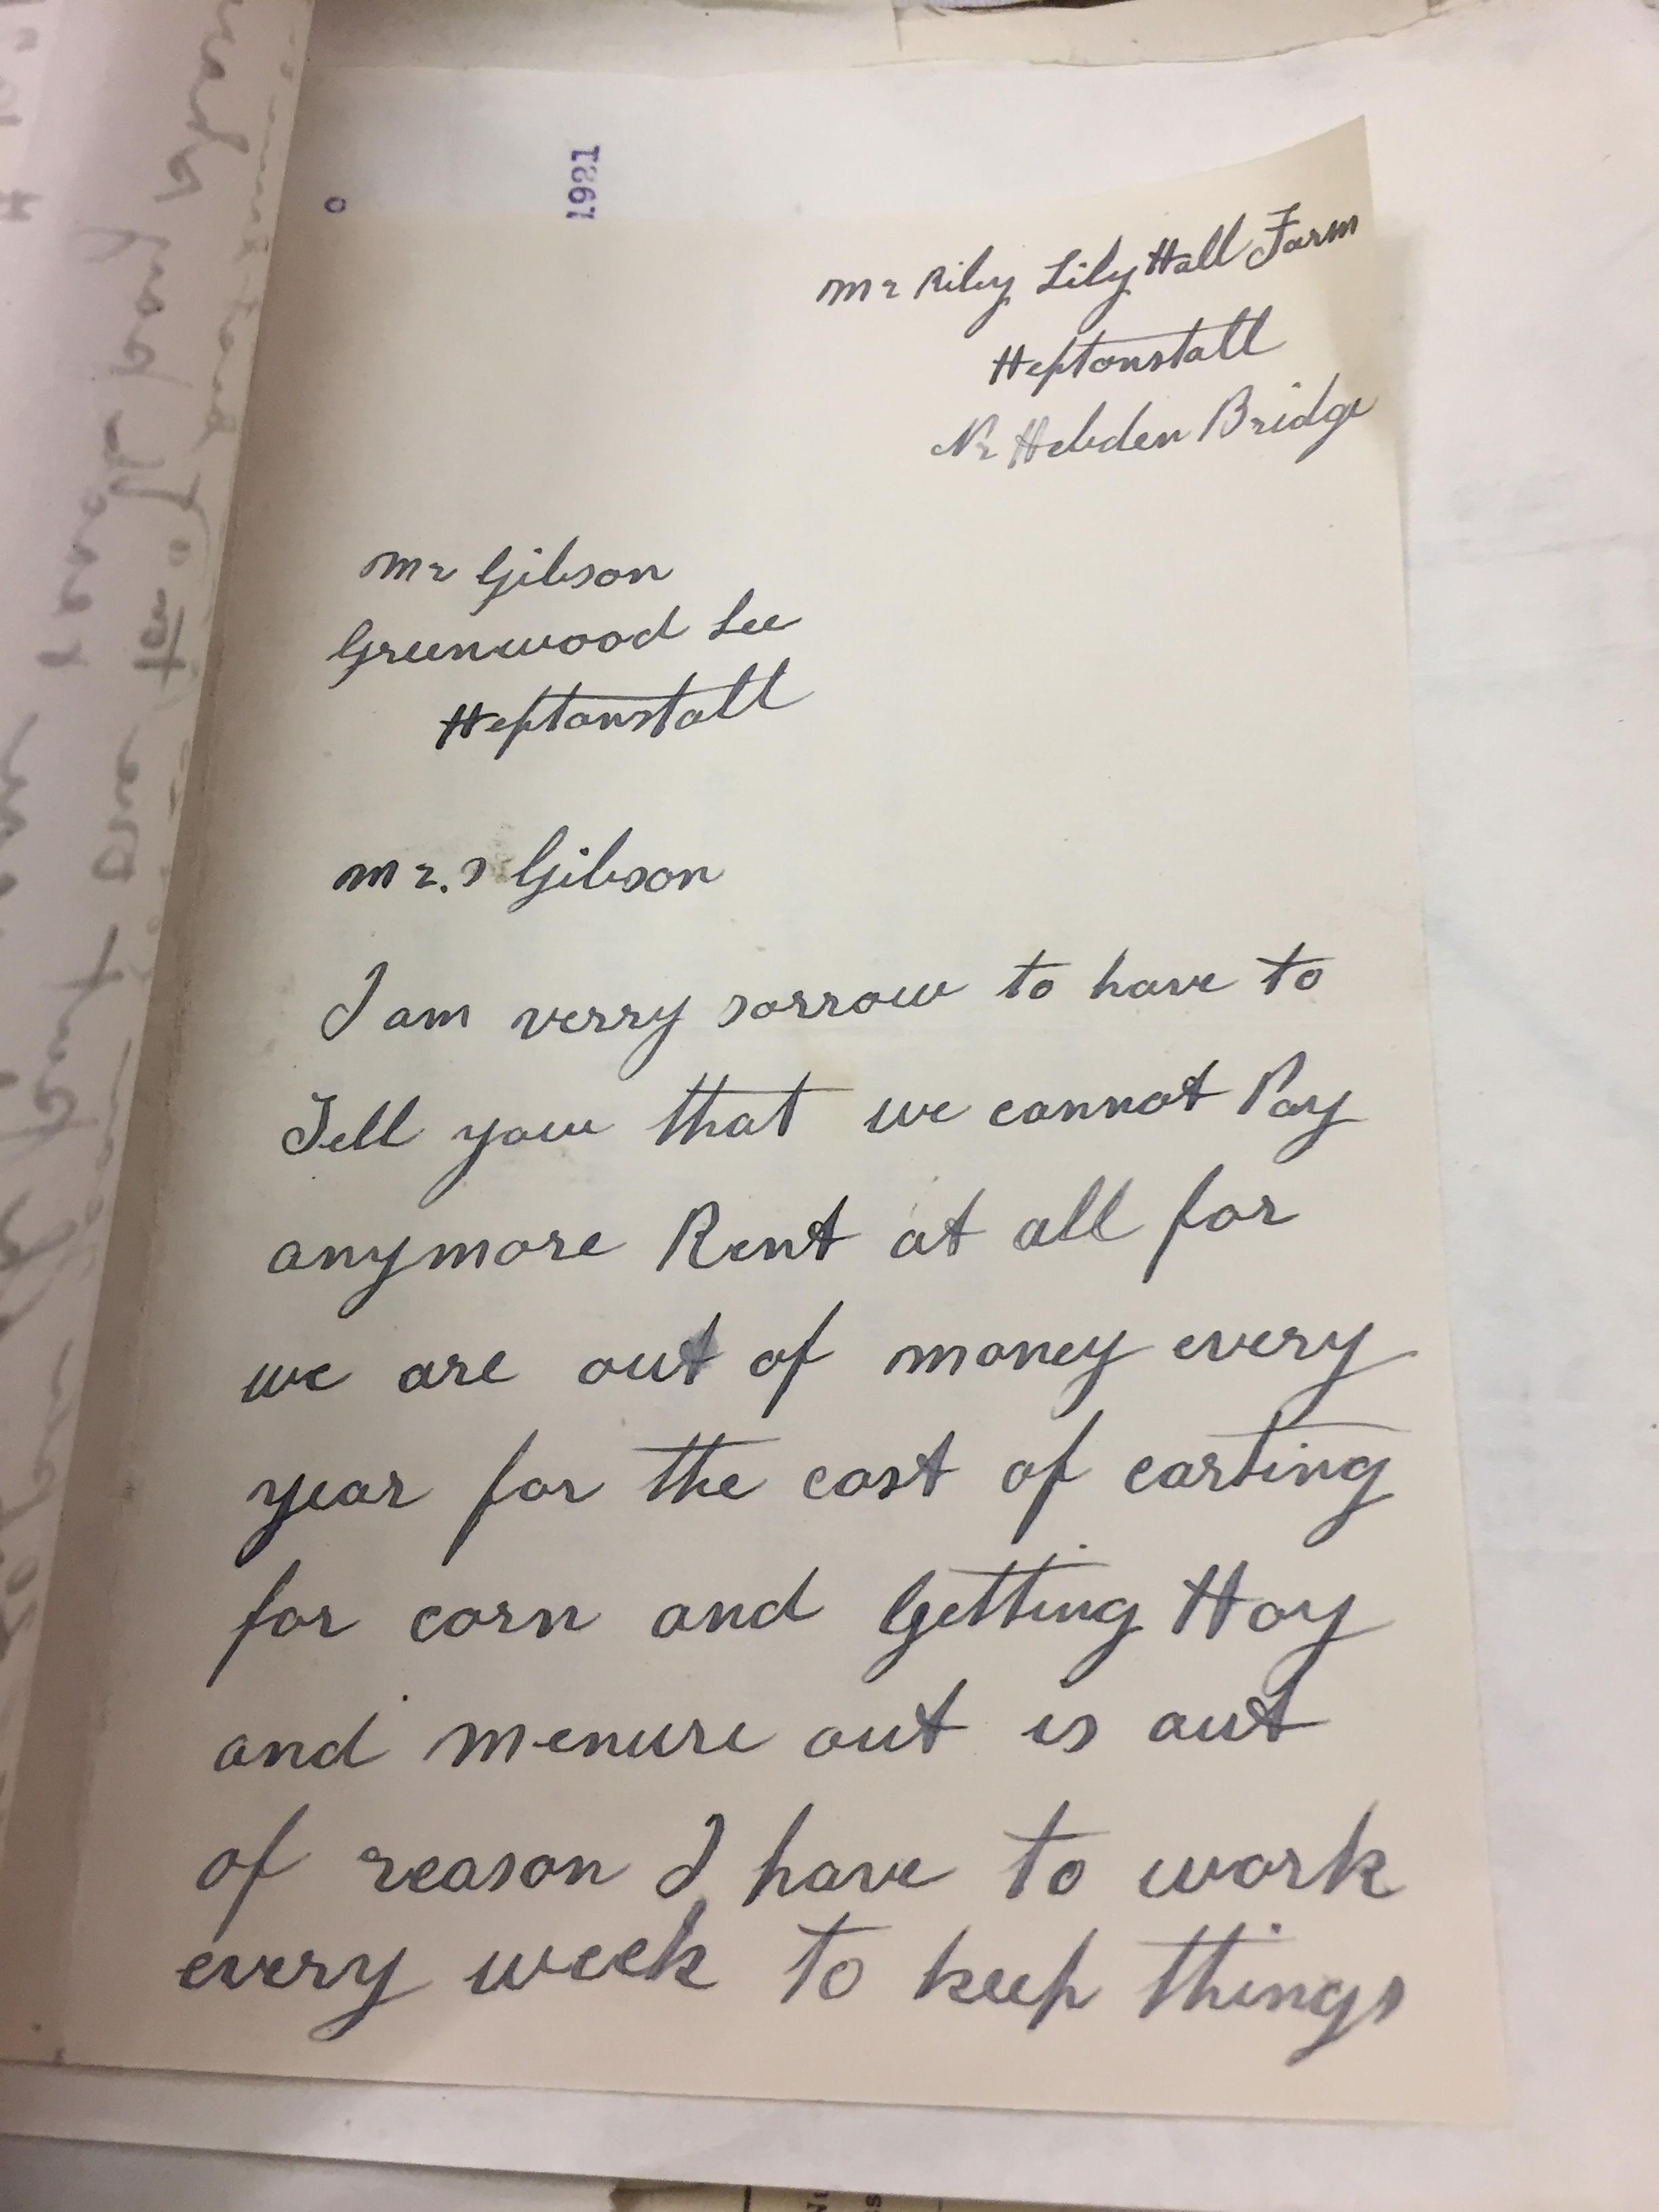 1931
Mr Riley Lily Hall Farm
Heptonstall
Nr Hebden Bridge
Mr Gibson
Greenwood Lee
Heptonstall
Mr.s Gibson
I am verry sorrow to have to
Tell youu that we cannot Pay
anymore Rent at all for
we are out of money every
year for the cost of carting
for corn and Getting Hay
and menure out is out
of reason I have to work
every week to keep things